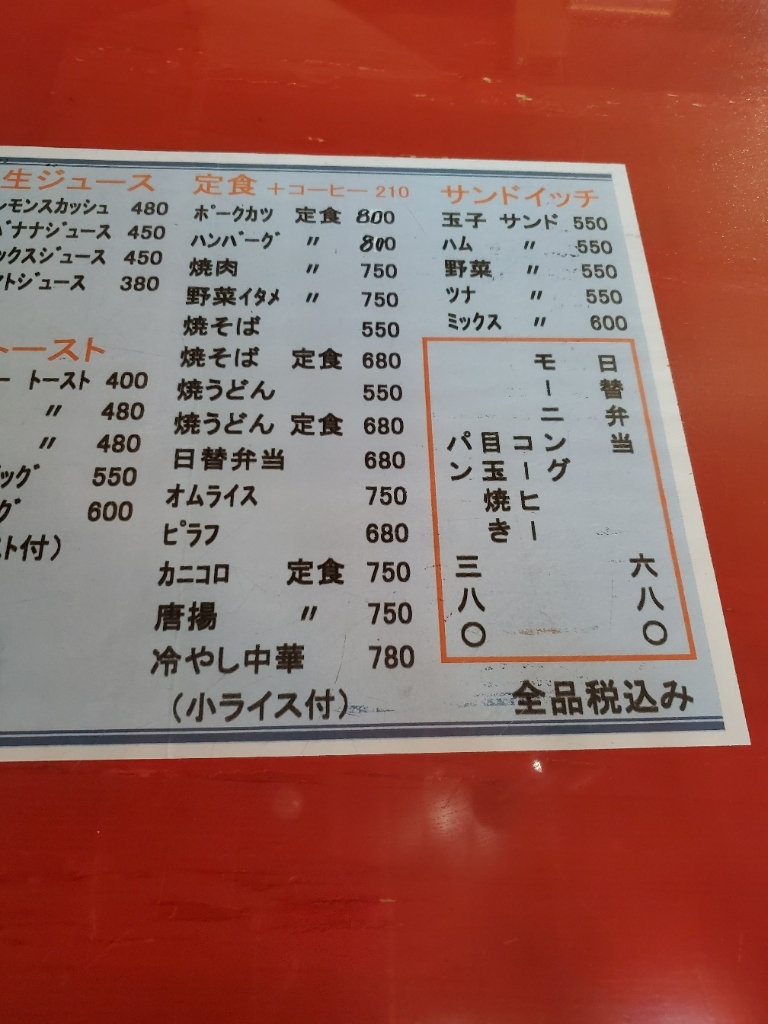 生ジュース
レモンスカッシュ 480
バナナジュース 450
ックスジュース 450
マトジュース 380
トースト
ー トースト 400
〃 480
〃 480
ッグ 550
グ 600
ト付)
定食 +コーヒー 210
ポークカツ 定食 800
ハンバーグ 〃 800
焼肉 〃 750
野菜イタメ 〃 750
焼そば 550
焼そば 定食 680
焼うどん 550
焼うどん 定食 680
日替弁当 680
オムライス 750
ピラフ 680
カニコロ 定食 750
唐揚 〃 750
冷やし中華 780
(小ライス付)
サンドイッチ
玉子 サンド 550
ハム 〃 550
野菜 〃 550
ツナ 〃 550
ミックス 〃 600
日替弁当 六八〇
モーニング
コーヒー
目玉焼き
パン 三八〇
全品税込み